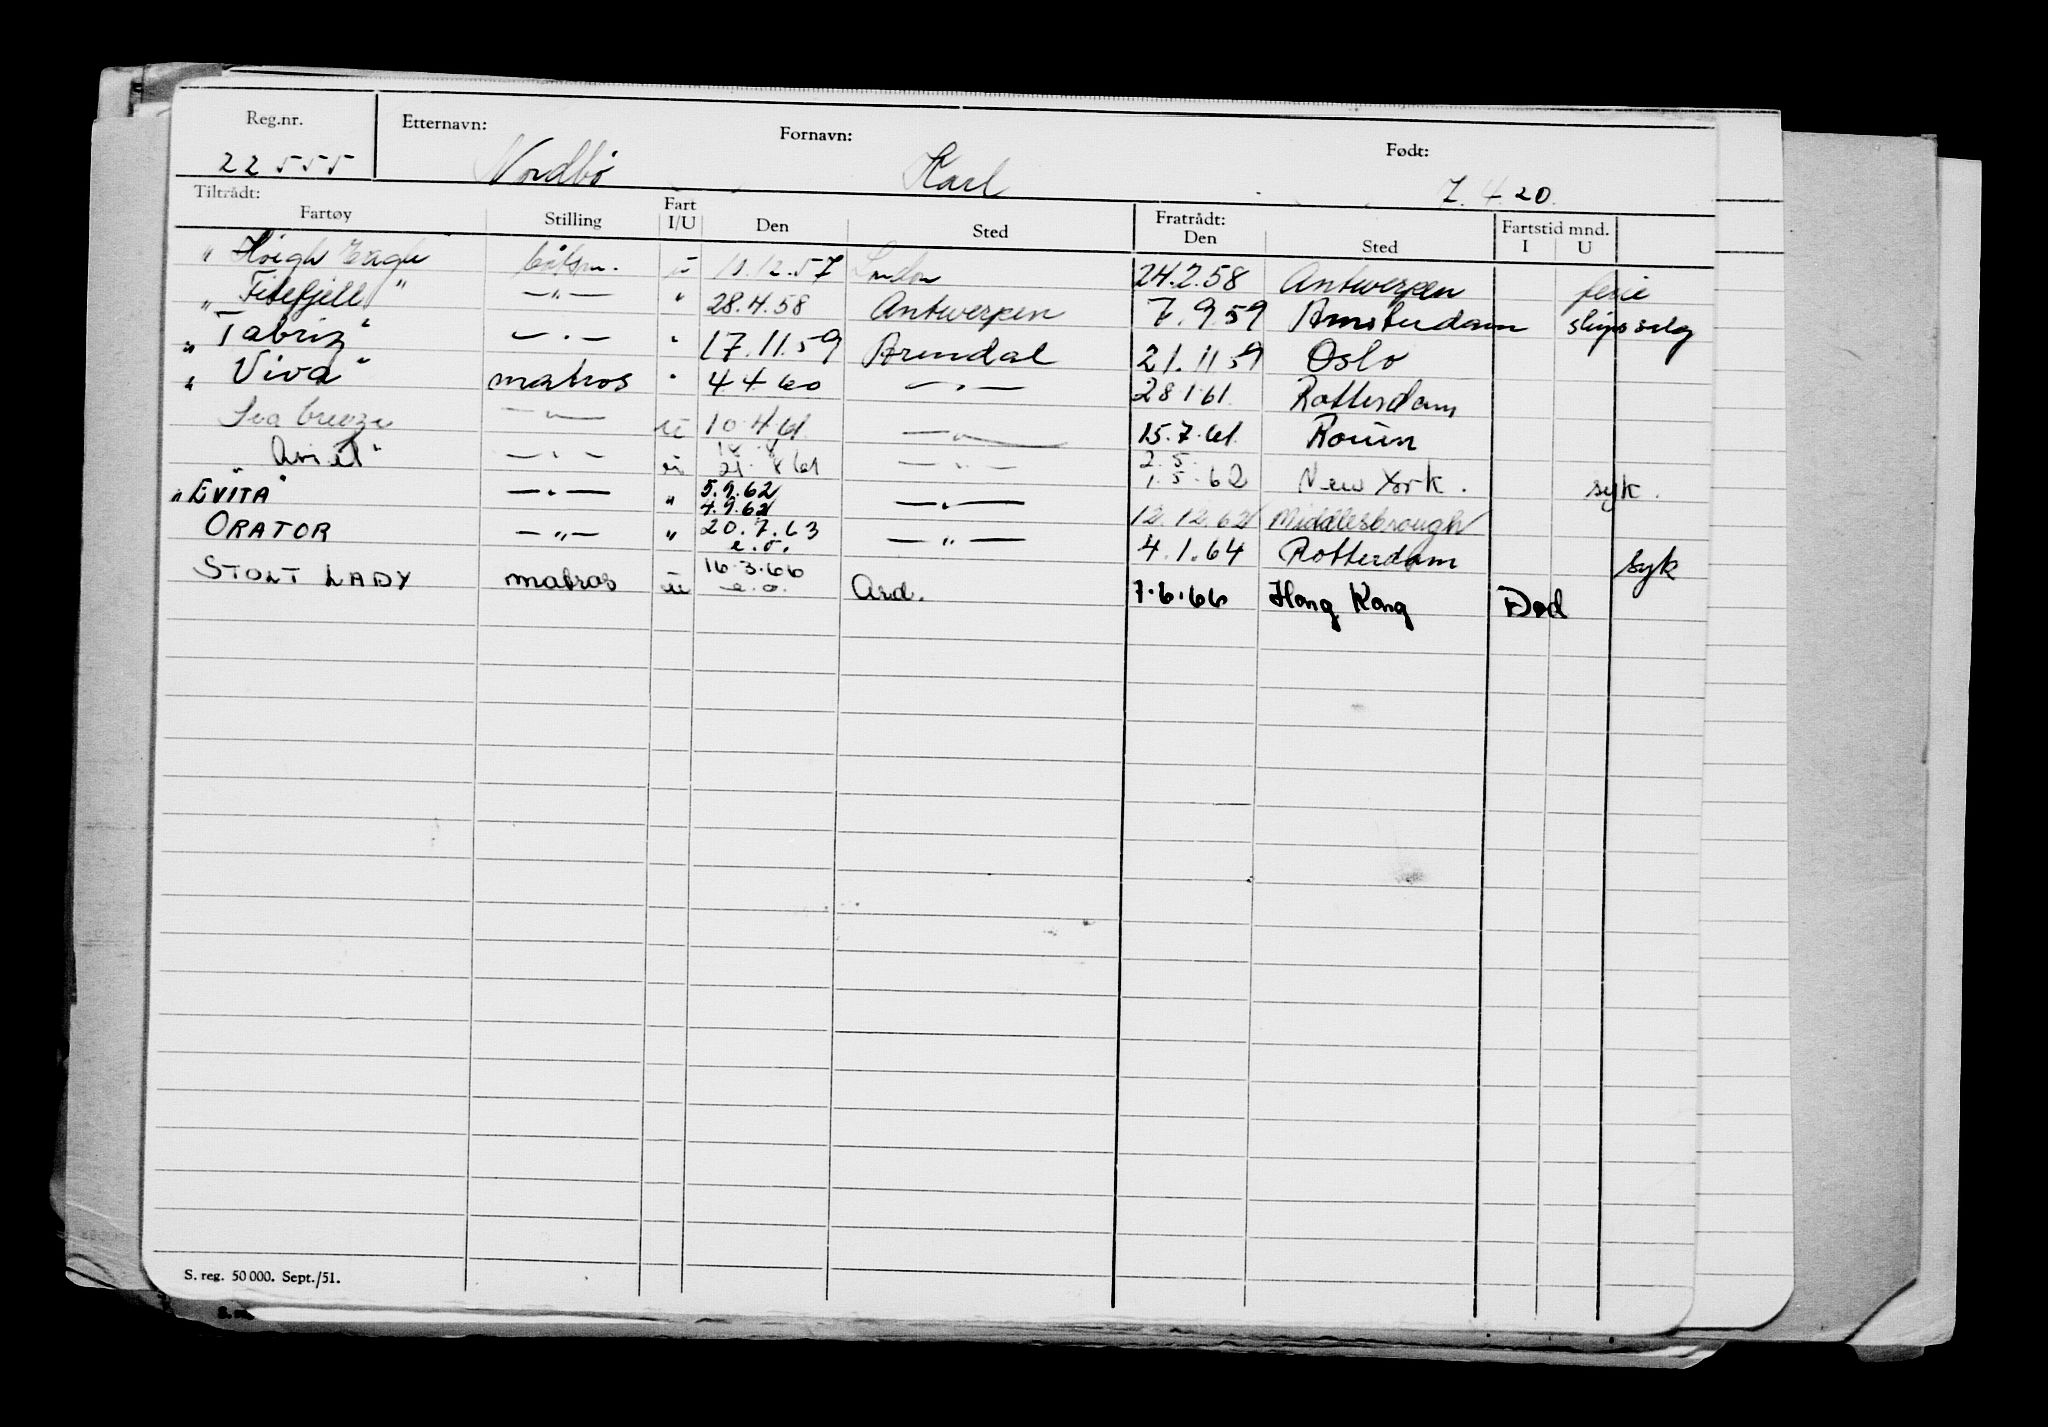 Reg.nr. Etternavn: Fornavn: Født:
22555 Nordbø Karl 7.4.20.
Tiltrådt: Fartøy Stilling Fart I/U Den Sted Fratrådt: Den Sted Fartstid mnd. I U
" Høegh Eagle båtsm. u 11.12.57 London 24.2.58 Antwerpen ferie
" Filefjell " — " — " 28.4.58 Antwerpen 7.9.59 Amsterdam skipssalg
" Tabriz " — " — " 17.11.59 Arendal 21.11.59 Oslo
" Viva " matros " 4.4.60 — " — 28.1.61. Rotterdam
Sea breeze — " — u 10.4.61. — " — 15.7.61. Rouen
Ariel " — " — u 21.8.61 — " — 2.5. 1.5.62 New York. syk.
" EVITA " — " — " 5.9.62 4.9.62 — " — 12.12.62 Middlesbrough
ORATOR — " — " 20.7.63 e.o. — " — 4.1.64 Rotterdam syk
STOLT LADY matros u 16.3.66 e.o. Ard. 7.6.66 Hong Kong Død
S. reg. 50 000. Sept./51.